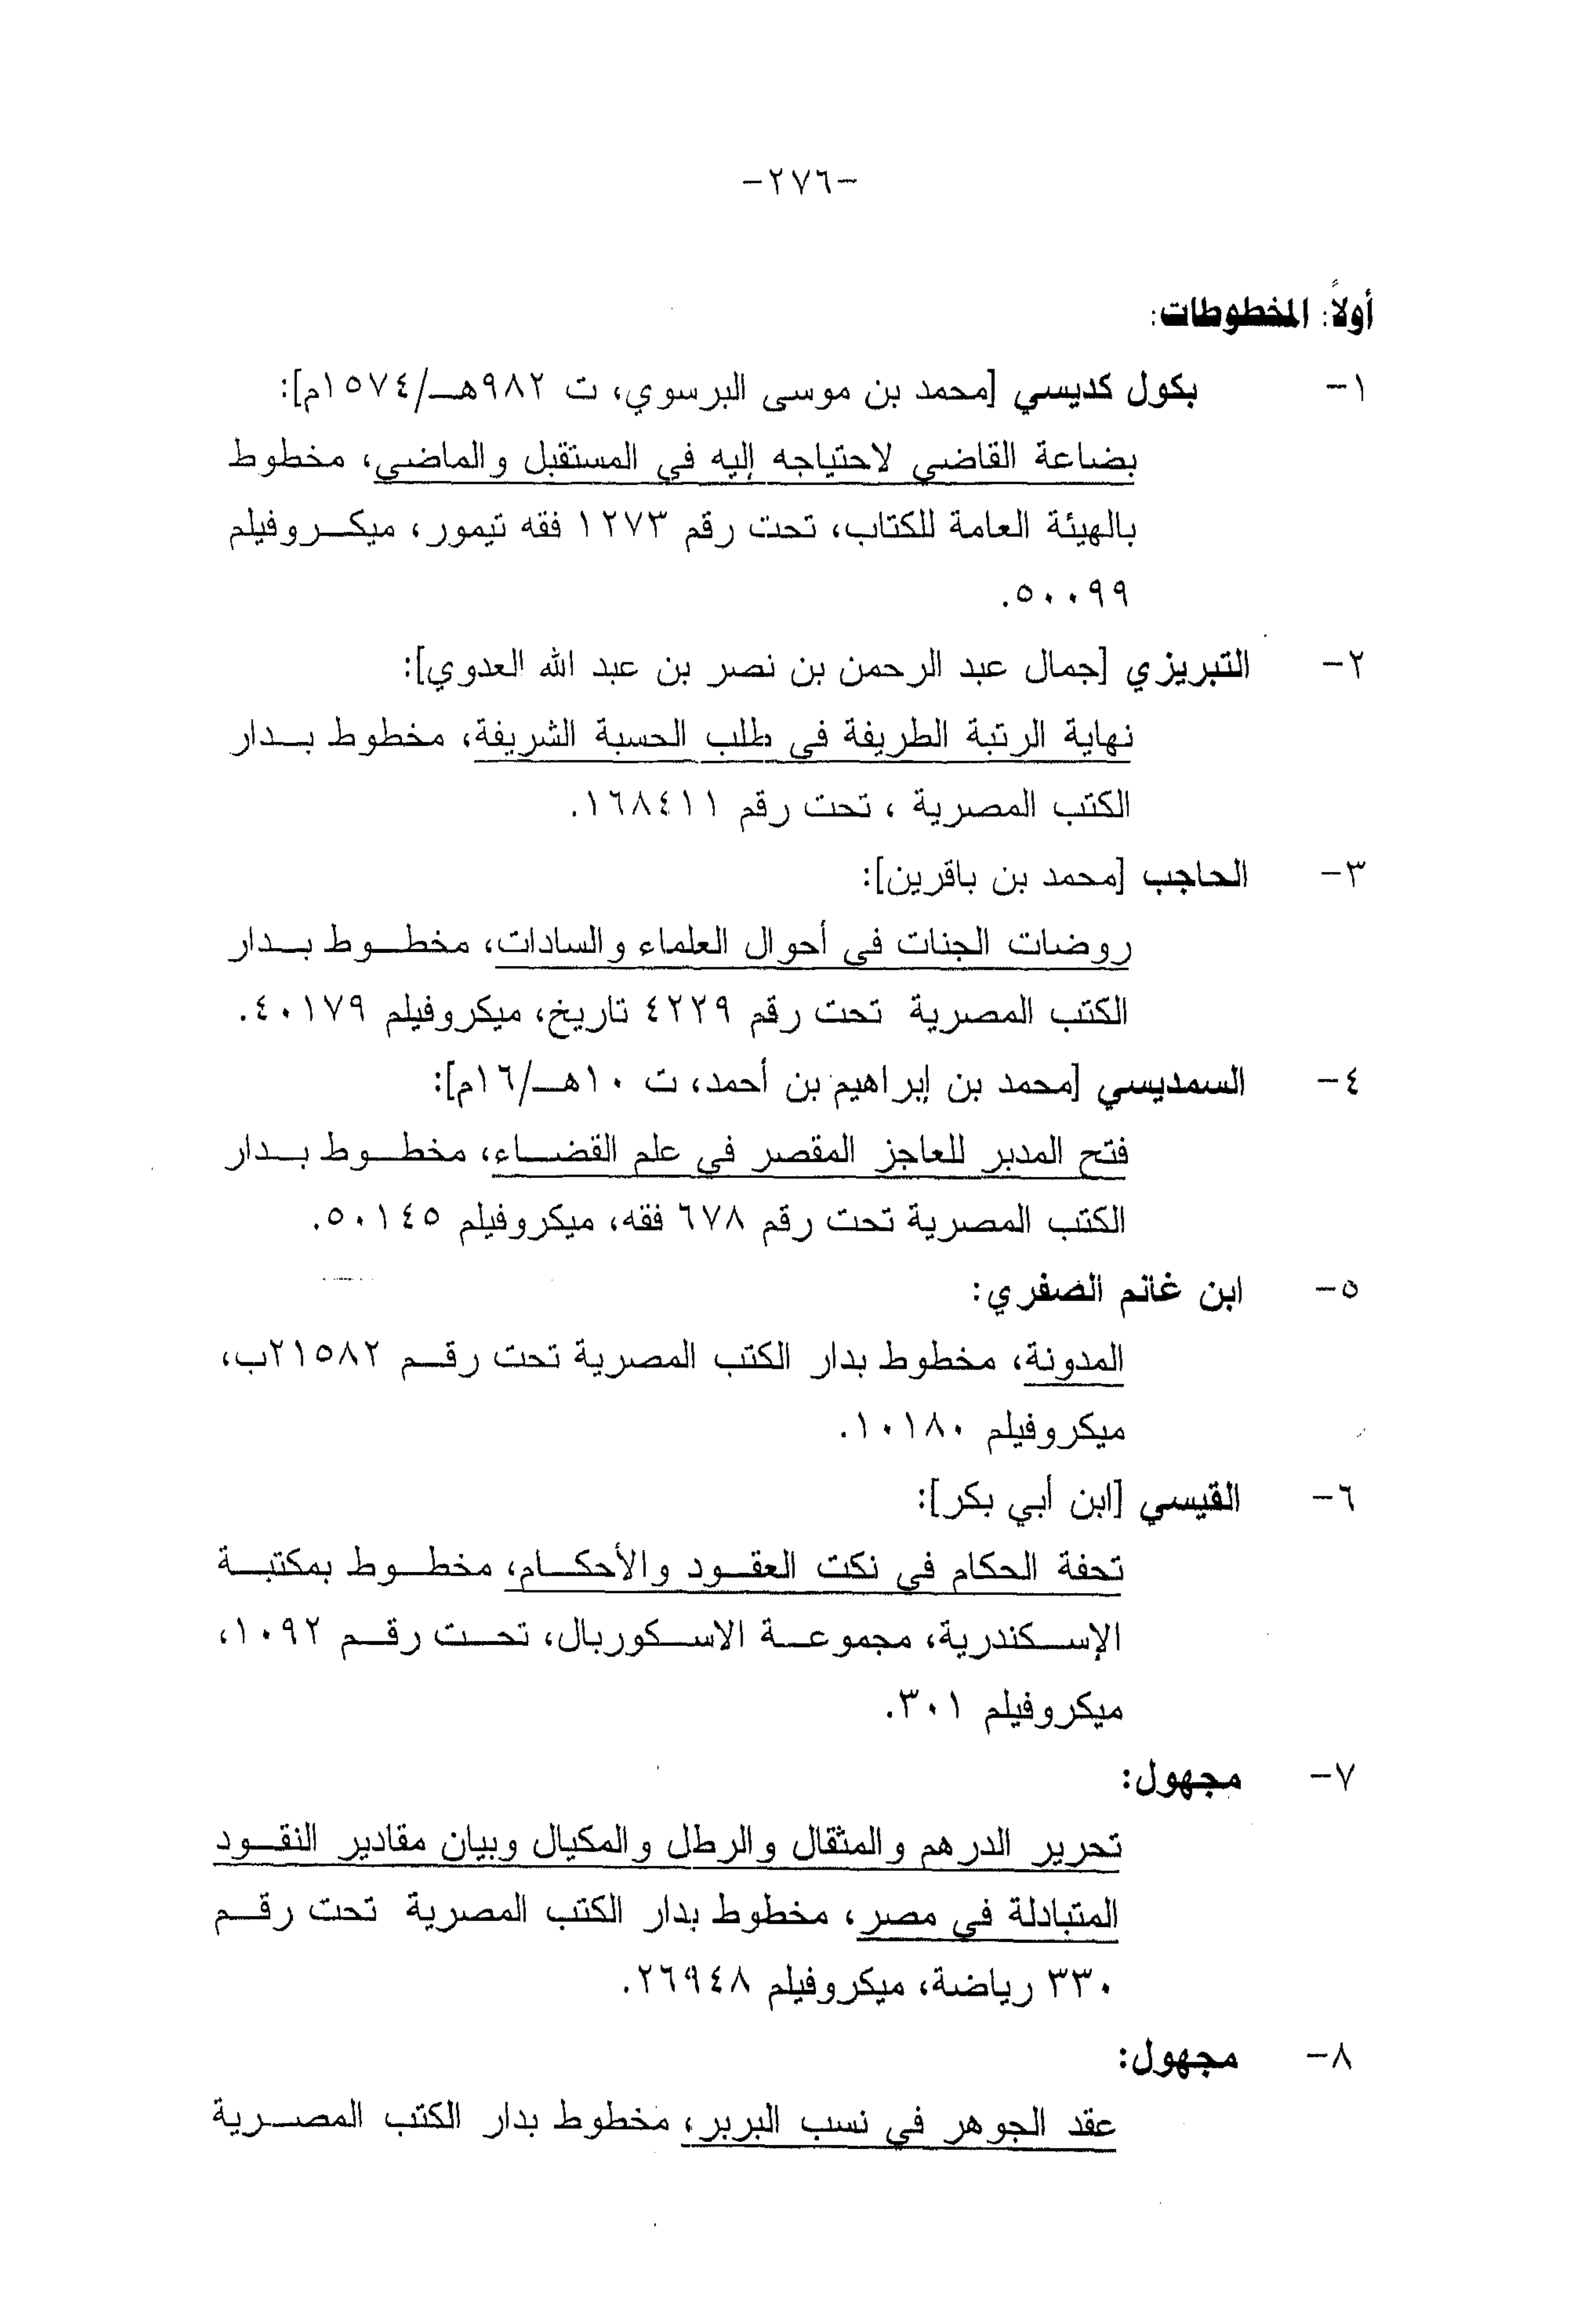 -٢٧٦-
أولاً: المخطوطات:
١- بكول كديسي [محمد بن موسى البرسوي، ت ٩٨٢هـ/١٥٧٤م]:
بضاعة القاضي لاحتياجه إليه في المستقبل والماضي، مخطوط
بالهيئة العامة للكتاب، تحت رقم ١٢٧٣ فقه تيمور، ميكروفيلم
٥٠٠٩٩.
٢- التبريزي [جمال عبد الرحمن بن نصر بن عبد الله العدوي]:
نهاية الرتبة الطريفة في طلب الحسبة الشريفة، مخطوط بدار
الكتب المصرية ، تحت رقم ١٦٨٤١١.
٣- الحاجب [محمد بن باقرين]:
روضات الجنات في أحوال العلماء والسادات، مخطوط بدار
الكتب المصرية تحت رقم ٤٢٢٩ تاريخ، ميكروفيلم ٤٠١٧٩.
٤- السمديسي [محمد بن إبراهيم بن أحمد، ت ١٠هـ/١٦م]:
فتح المدبر للعاجز المقصر في علم القضاء، مخطوط بدار
الكتب المصرية تحت رقم ٦٧٨ فقه، ميكروفيلم ٥٠١٤٥.
٥- ابن غانم الصفري:
المدونة، مخطوط بدار الكتب المصرية تحت رقم ٢١٥٨٢ب،
ميكروفيلم ١٠١٨٠.
٦- القيسي [ابن أبي بكر]:
تحفة الحكام في نكت العقود والأحكام، مخطوط بمكتبة
الإسكندرية، مجموعة الاسكوربال، تحت رقم ١٠٩٢،
ميكروفيلم ٣٠١.
٧- مجهول:
تحرير الدرهم والمثقال والرطل والمكيال وبيان مقادير النقود
المتبادلة في مصر، مخطوط بدار الكتب المصرية تحت رقم
٣٣٠ رياضة، ميكروفيلم ٢٦٩٤٨.
٨- مجهول:
عقد الجوهر في نسب البربر، مخطوط بدار الكتب المصرية